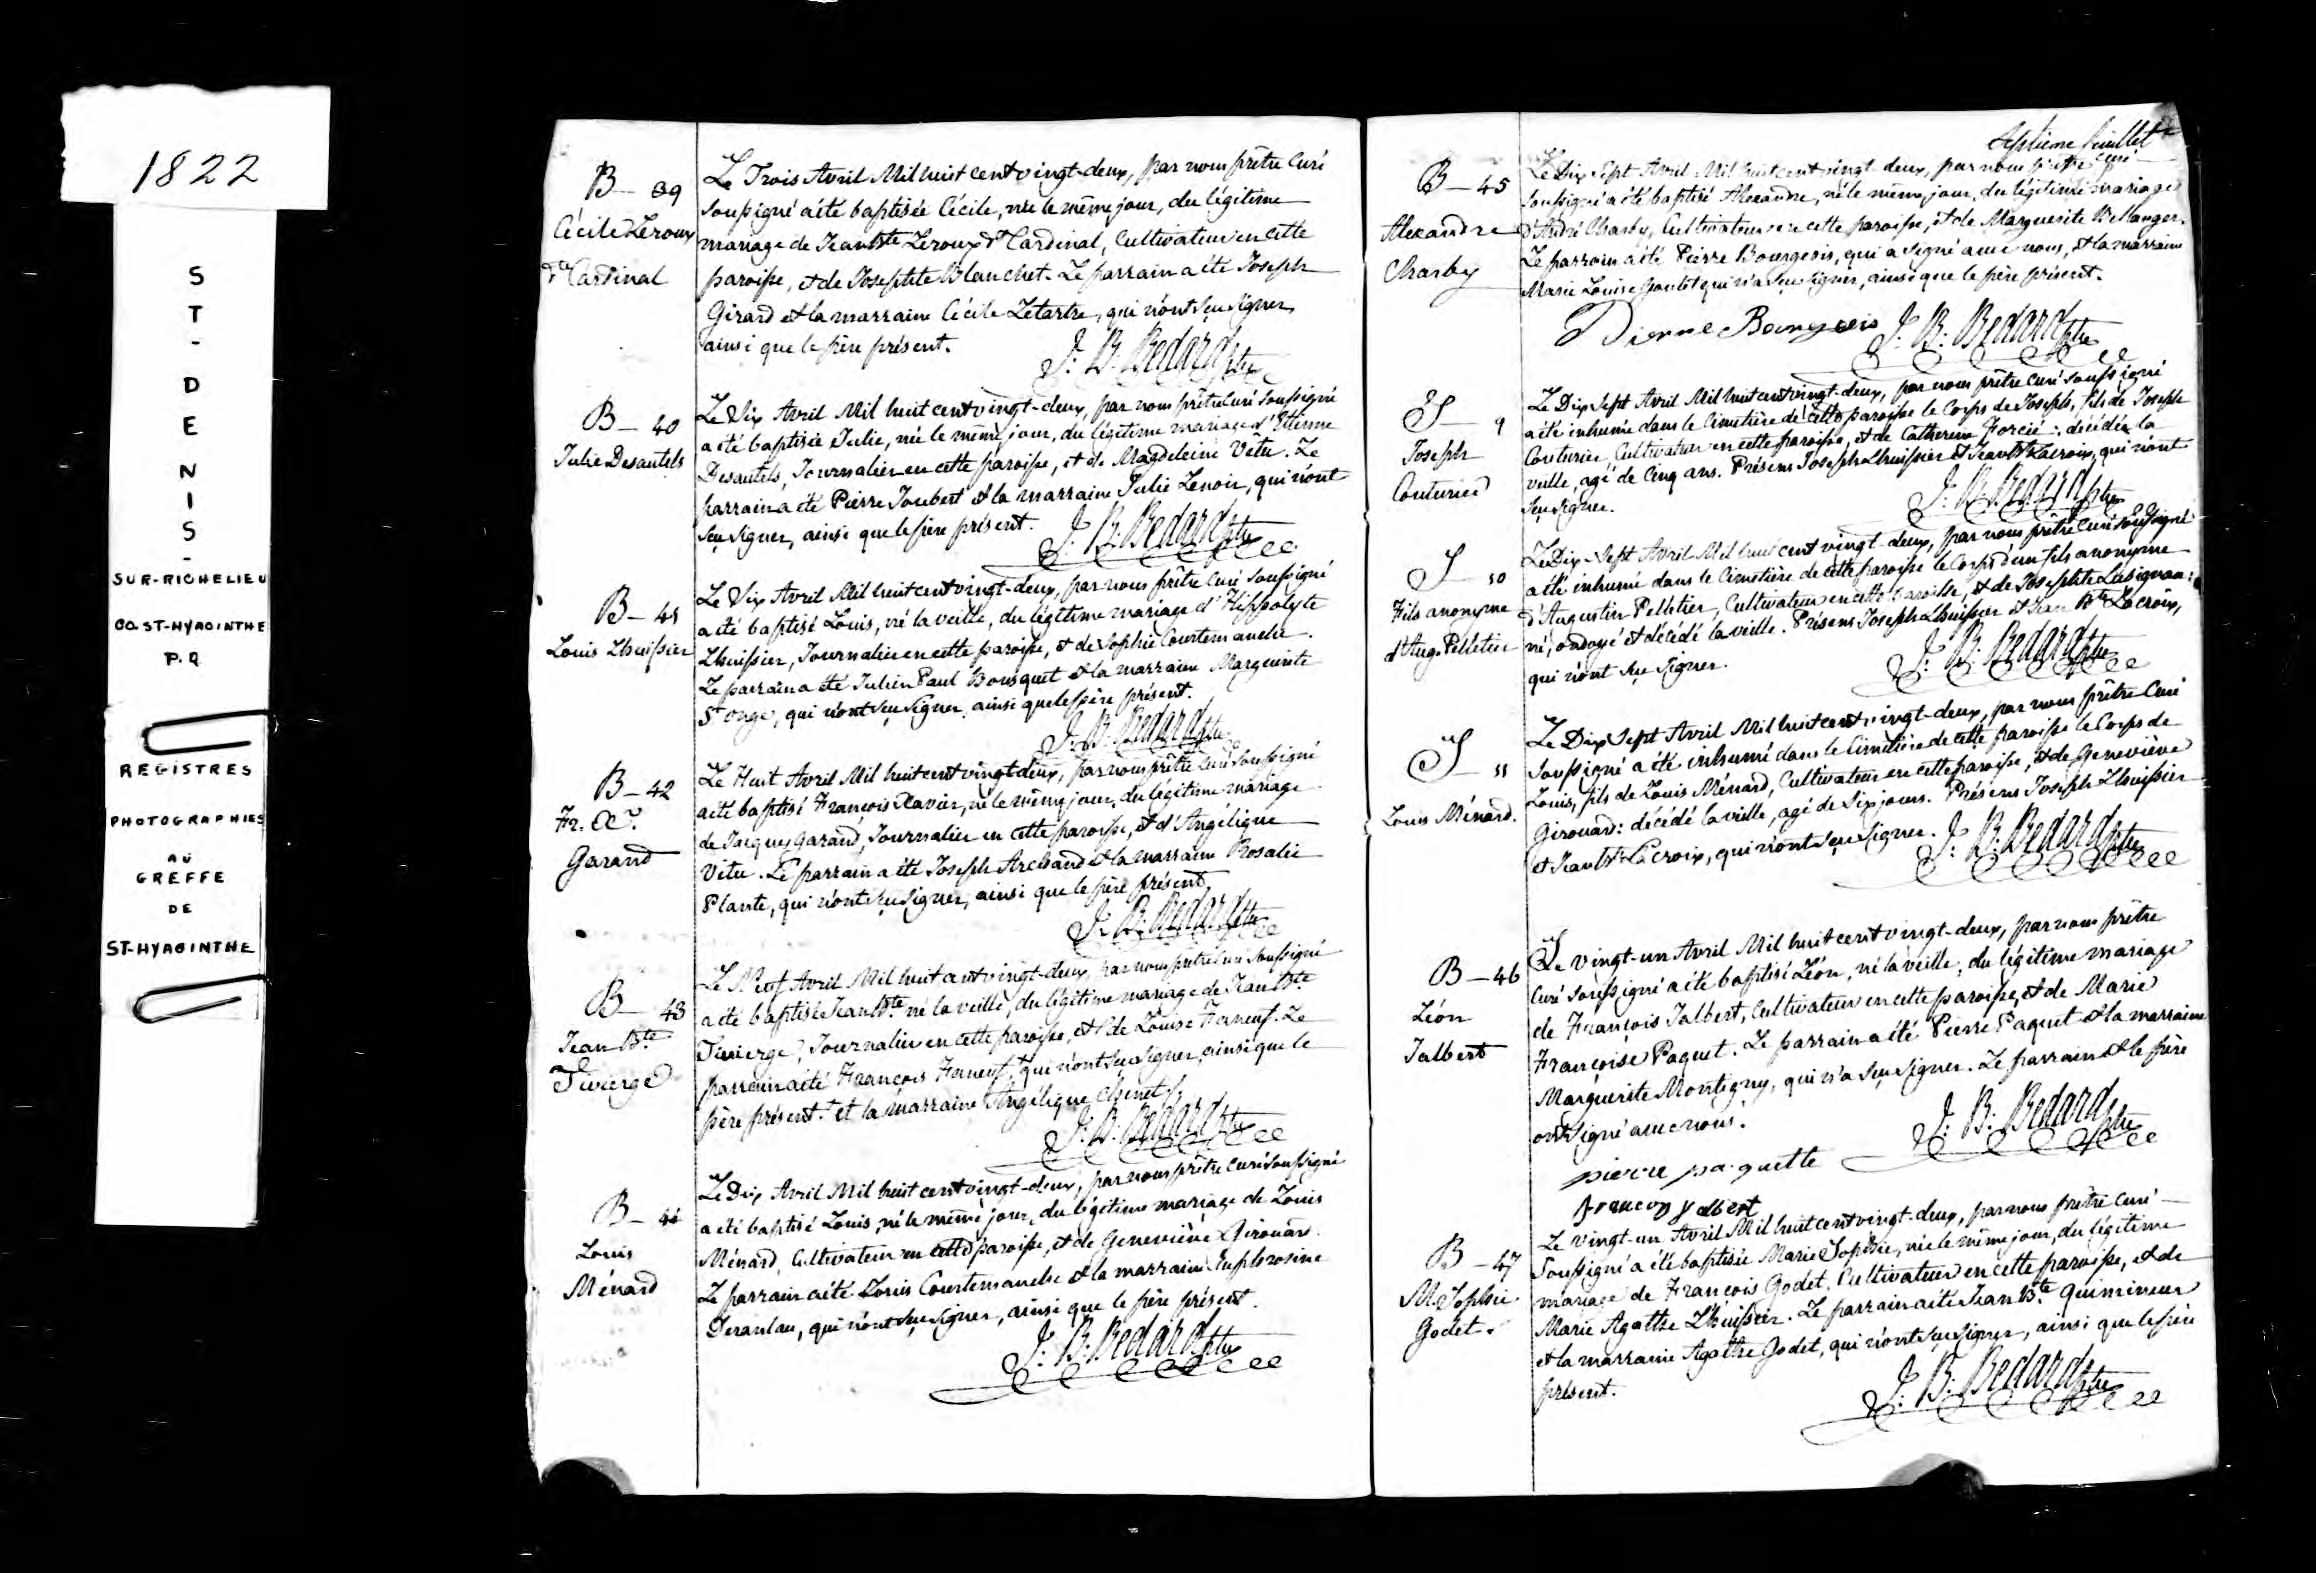 1822
S
T
-
D
E
N
I
S
-
SUR-RICHELIEU
CO. ST-HYACINTHE
P.Q.
REGISTRES
PHOTOGRAPHIES
AU
GREFFE
DE
ST-HYACINTHE
B — 39
Cécile Leroux
dte Cardinal
Le Trois Avril Mil huit cent vingt-deux, par nous prêtre Curé
soussigné a été baptisée Cécile, née le même jour, du légitime
mariage de Jean Bte Leroux dt Cardinal, Cultivateur en cette
paroisse, et de Josephte Blanchet. Le parrain a été Joseph
Girard et la marraine Cécile Letartre, qui n'ont sçu signer,
ainsi que le père présent.
J: B: Bedard ptre
B — 40
Julie Desautels
Le Six Avril Mil huit cent vingt-deux, par nous prêtre Curé soussigné
a été baptisée Julie, née le même jour, du légitime mariage d'Etienne
Desautels, Journalier en cette paroisse, et de Magdeleine Vêtu. Le
parrain a été Pierre Joubert et la marraine Julie Lenoir, qui n'ont
sçu signer, ainsi que le père présent.
J: B: Bedard ptre
B — 41
Louis Lhuissier
Le Six Avril Mil huit cent vingt-deux, par nous prêtre Curé soussigné
a été baptisé Louis, né la veille, du légitime mariage d'Hippolyte
Lhuissier, Journalier en cette paroisse, et de Sophie Courtemanche.
Le parrain a été Julien Paul Bousquet et la marraine Marguerite
St Onge, qui n'ont sçu signer, ainsi que le père présent.
J: B: Bedard ptre
B — 42
Fr. Xr.
Garand
Le Huit Avril Mil huit cent vingt-deux, par nous prêtre Curé soussigné
a été baptisé François Xavier, né le même jour, du légitime mariage
de Jacques Garand, Journalier en cette paroisse, et d'Angélique
Vitu. Le parrain a été Joseph Archand et la marraine Rosalie
Plante, qui n'ont sçu signer, ainsi que le père présent.
J: B: Bedard ptre
B — 43
Jean Bte
Tivierge
Le Neuf Avril Mil huit cent vingt-deux, par nous prêtre Curé soussigné
a été baptisé Jean Bte. né la veille, du légitime mariage de Jean Bte
Tivierge, Journalier en cette paroisse, et de Louise Ferneuf. Le
parrain a été François Ferneuf, + qui n'ont sçu signer, ainsi que le
père présent. + et la marraine Angélique Chenet
J: B: Bedard ptre
B — 44
Louis
Ménard
Le Dix Avril Mil huit cent vingt-deux, par nous prêtre Curé soussigné
a été baptisé Louis, né le même jour, du légitime mariage de Louis
Ménard, Cultivateur en cette paroisse, et de Geneviève Girouard.
Le parrain a été Louis Courtemanche et la marraine Euphrosine
qui n'ont sçu signer, ainsi que le père présent.
J: B: Bedard ptre
Septieme feuillet
B — 45
Alexandre
Charby
Le Dix Sept Avril Mil huit cent vingt-deux, par nous prêtre Curé
soussigné a été baptisé Alexandre, né le même jour, du légitime mariage
d'André Charby, Cultivateur en cette paroisse, et de Marguerite Bellanger.
Le parrain a été Pierre Bourgeois, qui a signé avec nous, et la marraine
Marie Louise qui n'a sçu signer, ainsi que le père présent.
Pierre Bourgeois J: B: Bedard ptre
S — 9
Joseph
Couturier
Le Dix Sept Avril Mil huit cent vingt-deux, par nous prêtre Curé soussigné
a été inhumé dans le Cimetière de cette paroisse le Corps de Joseph, fils de Joseph
Couturier, Cultivateur en cette paroisse, et de Catherine Forcié: décédé la
veille, agé de Cinq ans. Présens Joseph Lhuissier et Jean Bte Lacroix, qui n'ont
sçu signer.
J: B: Bedard ptre
S — 10
Fils anonyme
d'Aug. Pelletier
Le Dix-Sept Avril Mil huit cent vingt-deux, par nous prêtre Curé soussigné
a été inhumé dans le Cimetière de cette paroisse le Corps d'un fils anonyme
d'Augustin Pelletier, Cultivateur en cette paroisse, et de Josephte Lusignan:
né, ondoyé et décédé la veille. Présens Joseph Lhuissier et Jean Bte Lacroix,
qui n'ont sçu signer.
J: B: Bedard ptre
S — 11
Louis Ménard.
Le Dix Sept Avril Mil huit cent vingt-deux, par nous prêtre Curé
soussigné a été inhumé dans le Cimetière de cette paroisse le Corps de
Louis, fils de Louis Ménard, Cultivateur en cette paroisse, et de Geneviève
Girouard: décédé la veille, agé de Six jours. Présens Joseph Lhuissier
et Jean Bte Lacroix, qui n'ont sçu signer.
J: B: Bedard ptre
B — 46
Léon
Jalbert
Le vingt-un Avril Mil huit cent vingt-deux, par nous prêtre
Curé soussigné a été baptisé Léon, né la veille, du légitime mariage
de François Jalbert, Cultivateur en cette paroisse, et de Marie
Françoise Paquet. Le parrain a été Pierre Paquet et la marraine
Marguerite Montigny, qui n'a sçu signer. Le parrain et le père
ont signé avec nous.
J: B: Bedard ptre
pierre paquette
francoy yalbert
B — 47
M. Sophie
Godet.
Le vingt-un Avril Mil huit cent vingt-deux, par nous prêtre Curé
soussigné a été baptisée Marie Sophie, née le même jour, du légitime
mariage de François Godet, Cultivateur en cette paroisse, et de
Marie Agathe L'huissier. Le parrain a été Jean Bte Quimineur
et la marraine Agathe Godet, qui n'ont sçu signer, ainsi que le père
présent.
J: B: Bedard ptre